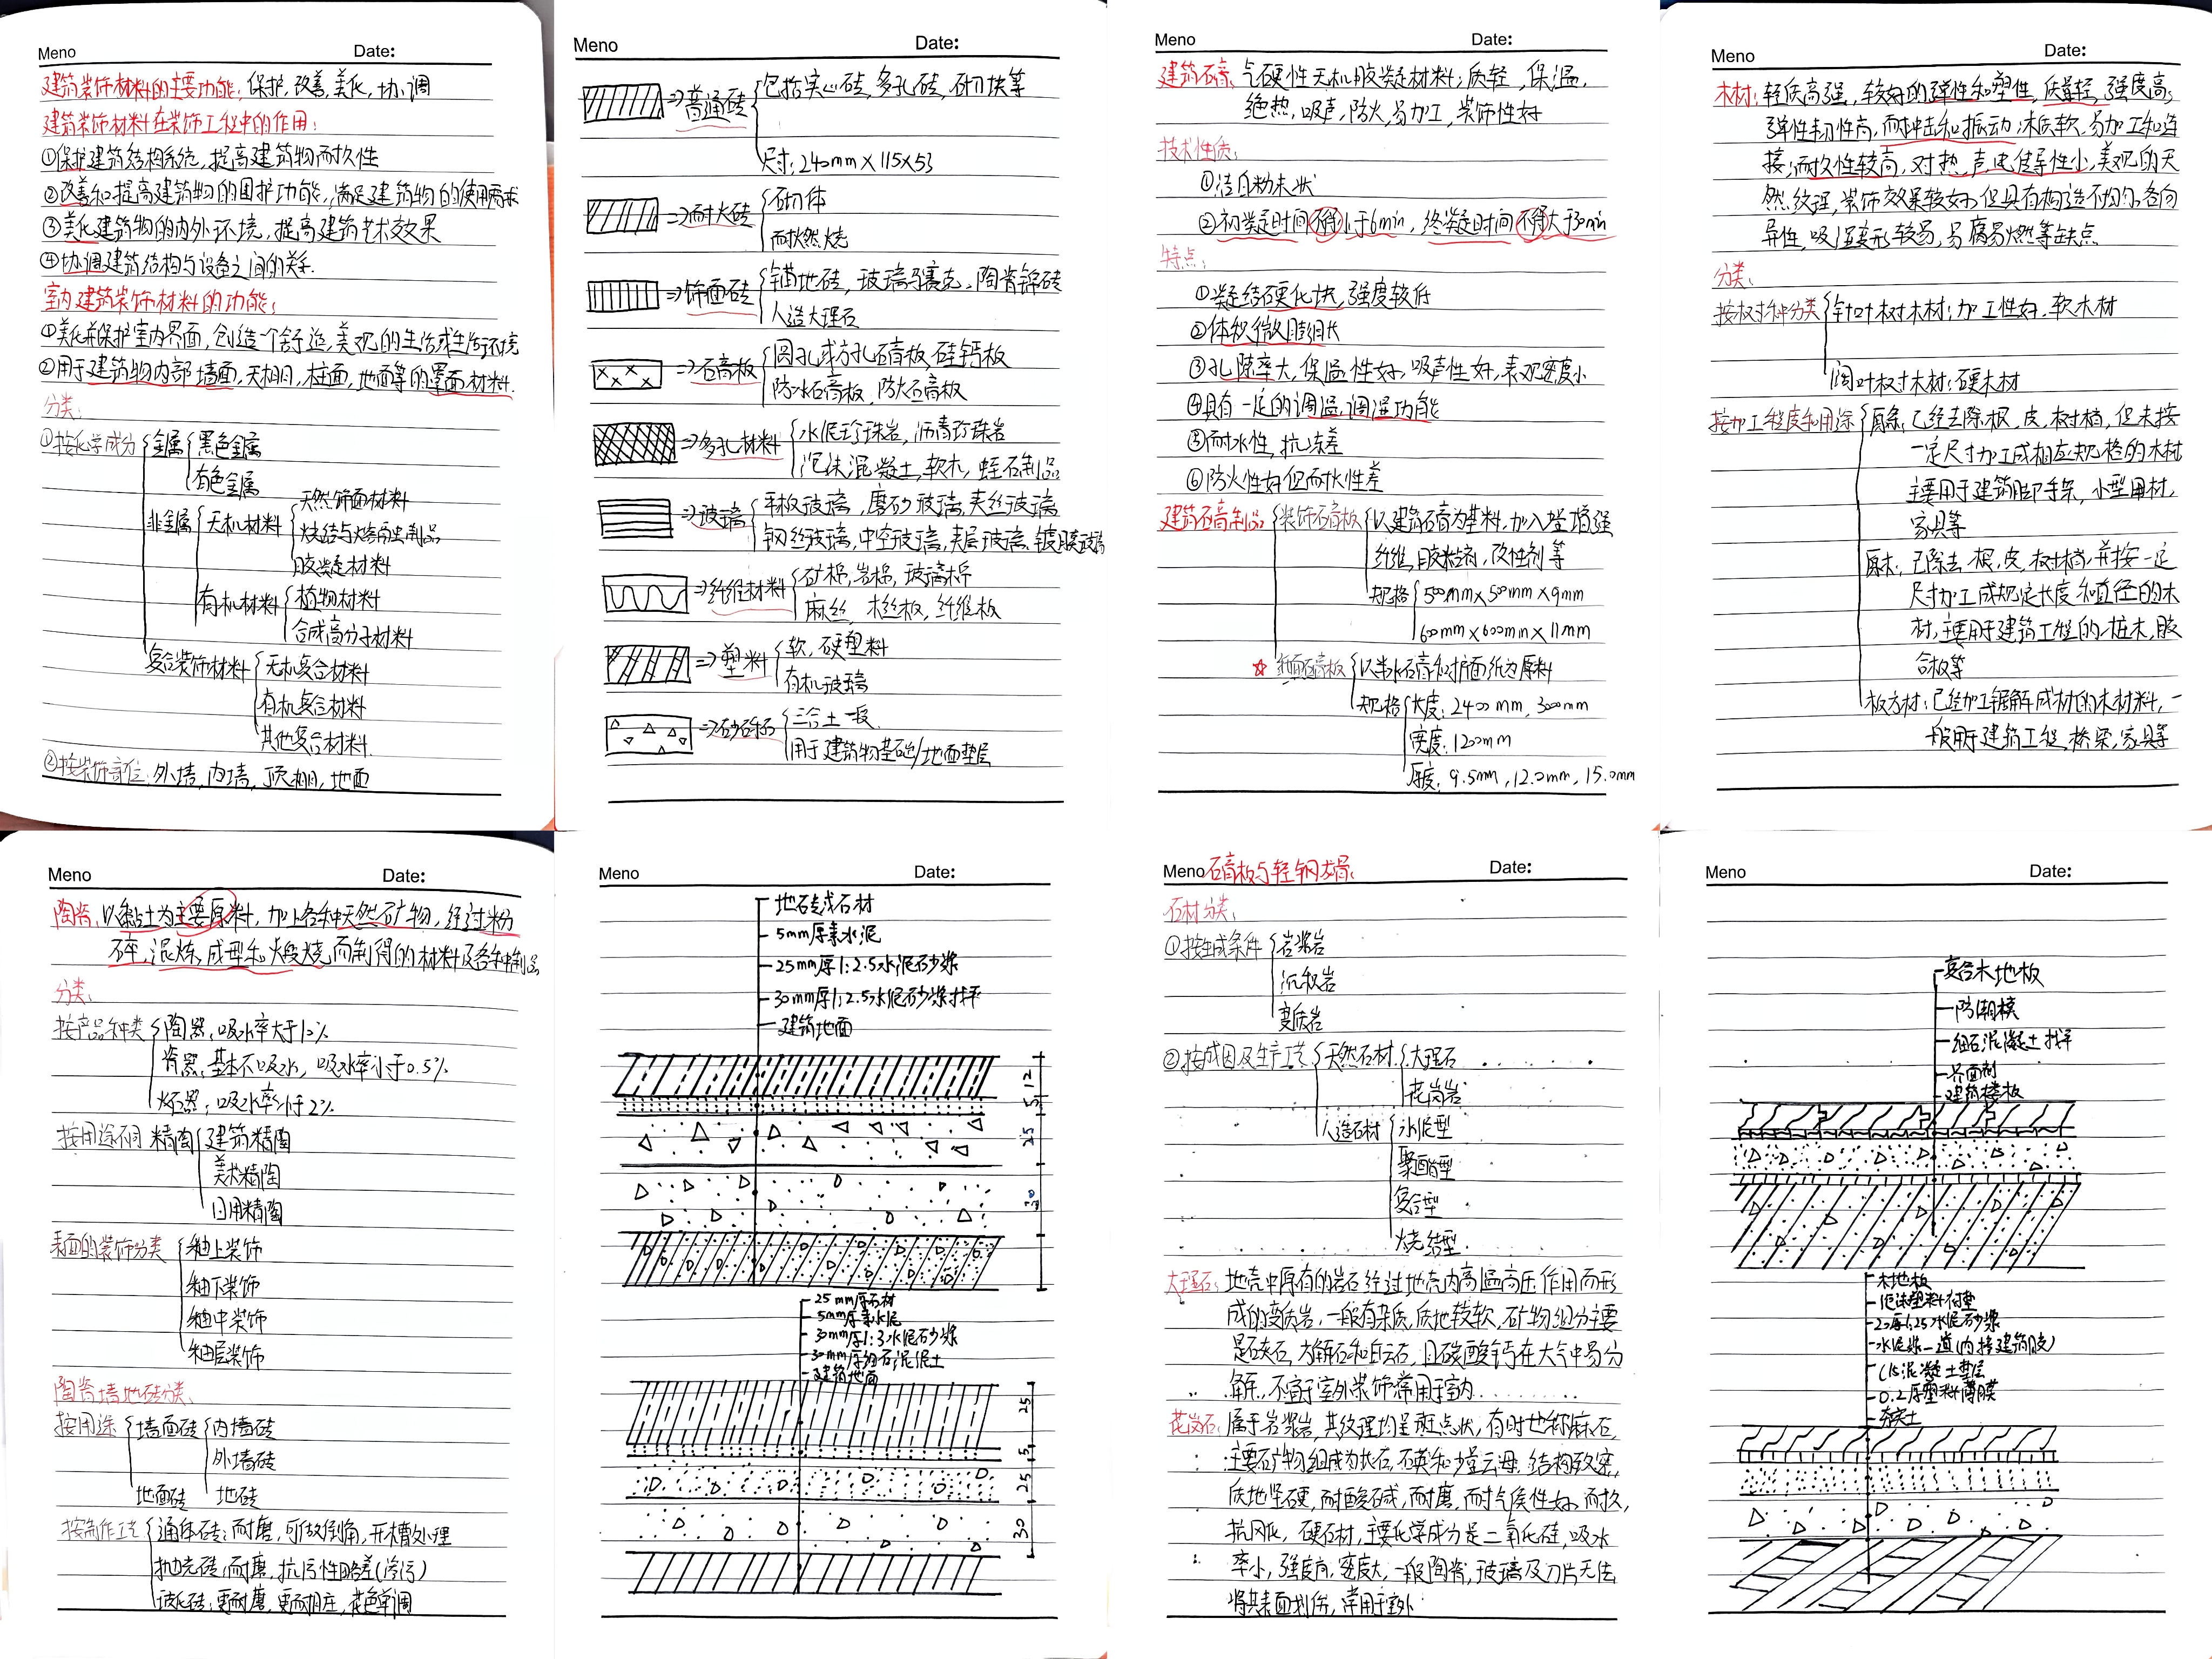 Meno Date:
建筑装饰材料的主要功能：保护，改善，美化，协调
建筑装饰材料在装饰工程中的作用：
①保护建筑结构系统，提高建筑物耐久性
②改善和提高建筑物的围护功能，满足建筑物的使用需求
③美化建筑物的内外环境，提高建筑艺术效果
④协调建筑结构与设备之间的关系.
室内建筑装饰材料的功能：
①美化并保护室内界面，创造一个舒适，美观的生活或生活环境
②用于建筑物内部墙面，天棚，柱面，地面等的罩面材料.
分类：
①按化学成分 金属 黑色金属
有色金属
非金属 无机材料 天然饰面材料
烧结与熔融制品
胶凝材料
有机材料 植物材料
合成高分子材料
复合装饰材料 无机复合材料
有机复合材料
其他复合材料
②按装饰部位：外墙，内墙，顶棚，地面
Meno Date:
⇒普通砖 包括实心砖，多孔砖，砌块等
尺寸：240mm×115×53
⇒耐火砖 砌体
耐燃烧
⇒饰面砖 铺地砖，玻璃马赛克，陶瓷锦砖
人造大理石
⇒石膏板 圆孔或方孔石膏板，硅钙板
防水石膏板，防火石膏板
⇒多孔材料 水泥珍珠岩，沥青珍珠岩
泡沫混凝土，软木，蛭石制品
⇒玻璃 平板玻璃，磨砂玻璃，夹丝玻璃
钢丝玻璃，中空玻璃，夹层玻璃，镀膜玻璃
⇒纤维材料 矿棉，岩棉，玻璃棉
麻丝，木丝板，纤维板
⇒塑料 软，硬塑料
有机玻璃
⇒砂砾石 三合土一般
用于建筑物基础/地面垫层
Meno Date:
建筑石膏：气硬性无机胶凝材料；质轻，保温，
绝热，吸声，防火，易加工，装饰性好
技术性质：
①洁白粉末状
②初凝时间不得小于6min，终凝时间不得大于30min
特点：
①凝结硬化快，强度较低
②体积微膨胀
③孔隙率大，保温性好，吸声性好，表观密度小
④具有一定的调温，调湿功能
⑤耐水性，抗冻差
⑥防火性好但耐火性差
建筑石膏制品 装饰石膏板 以建筑石膏为基料，加入增强
纤维，胶粘剂，改性剂等
规格 500mm×500mm×9mm
600mm×600mm×11mm
☆纸面石膏板 以半水石膏和护面纸为原料
规格 长度：2400mm，3000mm
宽度：1200mm
厚度：9.5mm，12.0mm，15.0mm
Meno Date:
木材：轻质高强，较好的弹性和塑性，质量轻，强度高；
弹性韧性高，耐冲击和振动；木质软，易加工和连
接；耐久性较高，对热，声，电传导性小，美观的天
然纹理，装饰效果较好；但具有构造不均匀，各向
异性，吸湿变形较易，易腐易燃等缺点
分类：
按树种分类 针叶树木材：加工性好，软木材
阔叶树木材：硬木材
按加工程度和用途 原条：已经去除根，皮，树梢，但未按
一定尺寸加工成相应规格的木材
主要用于建筑脚手架，小型用材，
家具等
原木：已除去根，皮，树梢，并按一定
尺寸加工成规定长度和直径的木
材，主要用于建筑工程的桩木，胶
合板等
板方材：已经加工锯解成材的木材料，一
般用于建筑工程，桥梁，家具等
Meno Date:
陶瓷：以黏土为主要原料，加上各种天然矿物，经过粉
碎，混炼，成型和煅烧，而制得的材料及各种制品
分类：
按产品种类 陶器：吸水率大于10%
瓷器：基本不吸水，吸水率小于0.5%
炻器：吸水率小于2%
按用途不同 精陶 建筑精陶
美术精陶
日用精陶
表面的装饰分类 釉上装饰
釉下装饰
釉中装饰
釉层装饰
陶瓷墙地砖分类：
按用途 墙面砖 内墙砖
外墙砖
地面砖 地砖
按制作工艺 通体砖：耐磨，可做倒角，开槽处理
抛光砖：耐磨，抗污性略差(渗污)
玻化砖：更耐磨，更耐压，花色单调
Meno Date:
地砖或石材
5mm厚素水泥
25mm厚1:2.5水泥砂浆
30mm厚1:2.5水泥砂浆找平
建筑地面
12
5
25
30
25mm厚石材
5mm厚素水泥
30mm厚1:3水泥砂浆
30mm厚细石混泥土
建筑地面
25
5
25
30
Meno 石膏板与轻钢龙骨： Date:
石材分类：
①按生成条件 岩浆岩
沉积岩
变质岩
②按成因及生产工艺 天然石材 大理石
花岗岩
人造石材 水泥型
聚酯型
复合型
烧结型
大理石：地壳中原有的岩石经过地壳内高温高压作用而形
成的变质岩，一般有杂质，质地较软，矿物组分主要
是石灰石，方解石和白云石，且碳酸钙在大气中易分
解，不宜于室外装饰，常用于室内
花岗石：属于岩浆岩，其纹理均呈斑点状，有时也称麻石，
主要矿物组成为长石，石英和少量云母，结构致密，
质地坚硬，耐酸碱，耐磨，耐气候性好，耐久，
抗风化，硬石材，主要化学成分是二氧化硅，吸水
率小，强度高，密度大，一般陶瓷，玻璃及刀片无法
将其表面划伤，常用于室外
Meno Date:
复合木地板
防潮棉
细石混凝土找平
界面剂
建筑楼板
木地板
泡沫塑料衬垫
20厚1:2.5水泥砂浆
水泥浆一道(内掺建筑胶)
C15混凝土垫层
0.2厚塑料薄膜
夯实土